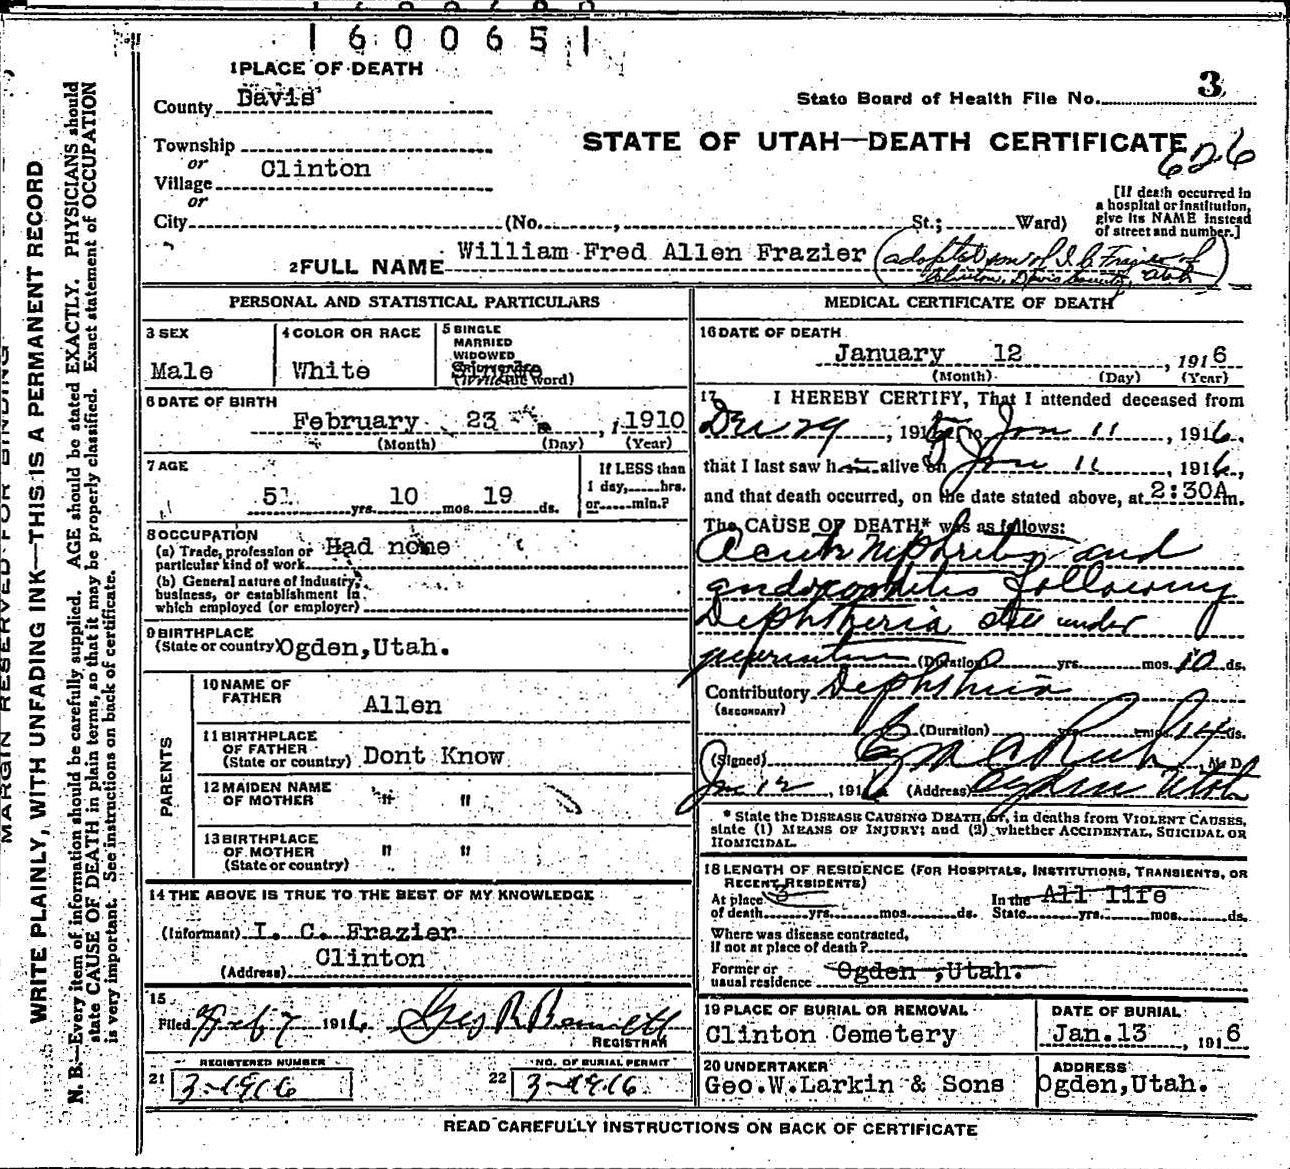 1600651
1 PLACE OF DEATH
County Davis
State Board of Health File No. 3
STATE OF UTAH—DEATH CERTIFICATE
626
Township
or
Village Clinton
or
City (No. , St.; Ward)
[If death occurred in
a hospital or institution,
give its NAME instead
of street and number.]
2 FULL NAME William Fred Allen Frazier (adopted son of I. C. Frazier of
Clinton, Davis County, Utah)
PERSONAL AND STATISTICAL PARTICULARS
3 SEX
Male
4 COLOR OR RACE
White
5 SINGLE
MARRIED
WIDOWED
6 DATE OF BIRTH
February 23, 1910
(Month) (Day) (Year)
7 AGE
5 yrs. 10 mos. 19 ds.
If LESS than
1 day,.....hrs.
or.....min.?
8 OCCUPATION
(a) Trade, profession or
particular kind of work Had none
(b) General nature of industry,
business, or establishment in
which employed (or employer)
9 BIRTHPLACE
(State or country) Ogden, Utah.
PARENTS
10 NAME OF
FATHER Allen
11 BIRTHPLACE
OF FATHER
(State or country) Dont Know
12 MAIDEN NAME
OF MOTHER " "
13 BIRTHPLACE
OF MOTHER " "
(State or country)
14 THE ABOVE IS TRUE TO THE BEST OF MY KNOWLEDGE
(Informant) I. C. Frazier
Clinton
(Address)
15
Filed Feb 7 1916 Geo R Bennett
REGISTRAR
REGISTERED NUMBER
21 3-1916
NO. OF BURIAL PERMIT
22 3-1916
MEDICAL CERTIFICATE OF DEATH
16 DATE OF DEATH
January 12, 1916
(Month) (Day) (Year)
17 I HEREBY CERTIFY, That I attended deceased from
Dec 29, 191 to Jan 11, 1916,
that I last saw h alive on Jan 11, 1916,
and that death occurred, on the date stated above, at 2:30A m.
The CAUSE OF DEATH* was as follows:
Acute Nephritis and
endocarditis following
Diphtheria still under
(Duration) yrs. mos. 10 ds.
Contributory Diphtheria
(SECONDARY)
(Duration) yrs. mos. 14 ds.
(Signed) M. D.
Jan 12, 1916 (Address) Ogden Utah
* State the DISEASE CAUSING DEATH, or, in deaths from VIOLENT CAUSES,
state (1) MEANS OF INJURY; and (2) whether ACCIDENTAL, SUICIDAL OR
HOMICIDAL.
18 LENGTH OF RESIDENCE (FOR HOSPITALS, INSTITUTIONS, TRANSIENTS, OR
RECENT RESIDENTS)
At place In the All life
of death yrs. mos. ds. State yrs. mos. ds.
Where was disease contracted,
if not at place of death?
Former or
usual residence Ogden, Utah.
19 PLACE OF BURIAL OR REMOVAL
Clinton Cemetery
DATE OF BURIAL
Jan. 13, 1916
20 UNDERTAKER
Geo. W. Larkin & Sons
ADDRESS
Ogden, Utah.
READ CAREFULLY INSTRUCTIONS ON BACK OF CERTIFICATE
MARGIN RESERVED FOR BINDING
WRITE PLAINLY, WITH UNFADING INK—THIS IS A PERMANENT RECORD
N. B.—Every item of information should be carefully supplied. AGE should be stated EXACTLY. PHYSICIANS should
state CAUSE OF DEATH in plain terms, so that it may be properly classified. Exact statement of OCCUPATION
is very important. See instructions on back of certificate.